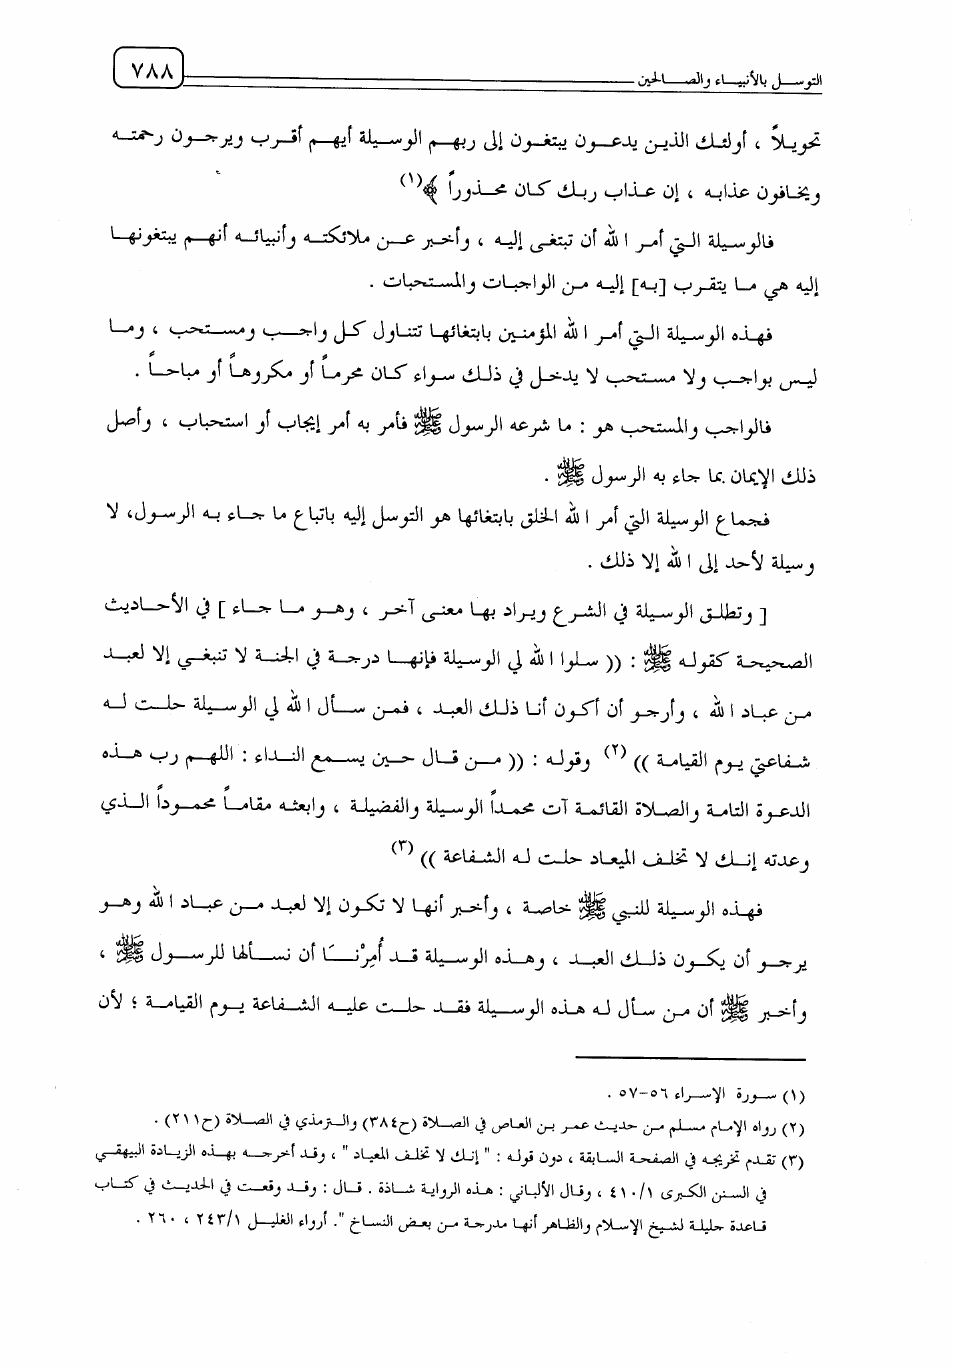 التوسل بالأنبياء والصالحين ٧٨٨
تحويلاً ، أولئك الذين يدعون يبتغون إلى ربهم الوسيلة أيهم أقرب ويرجون رحمته
ويخافون عذابه ، إن عذاب ربك كان محذوراً ﴾(١)
فالوسيلة التي أمر الله أن تبتغى إليه ، وأخبر عن ملائكته وأنبيائه أنهم يبتغونها
إليه هي ما يتقرب [به] إليه من الواجبات والمستحبات .
فهذه الوسيلة التي أمر الله المؤمنين بابتغائها تتناول كل واجب ومستحب ، وما
ليس بواجب ولا مستحب لا يدخل في ذلك سواء كان محرماً أو مكروهاً أو مباحاً .
فالواجب والمستحب هو : ما شرعه الرسول ﷺ فأمر به أمر إيجاب أو استحباب ، وأصل
ذلك الإيمان بما جاء به الرسول ﷺ .
فجماع الوسيلة التي أمر الله الخلق بابتغائها هو التوسل إليه باتباع ما جاء به الرسول، لا
وسيلة لأحد إلى الله إلا ذلك .
[ وتطلق الوسيلة في الشرع ويراد بها معنى آخر ، وهو ما جاء ] في الأحاديث
الصحيحة كقوله ﷺ : (( سلوا الله لي الوسيلة فإنها درجة في الجنة لا تنبغي إلا لعبد
من عباد الله ، وأرجو أن أكون أنا ذلك العبد ، فمن سأل الله لي الوسيلة حلت له
شفاعتي يوم القيامة ))(٢) وقوله : (( من قال حين يسمع النداء : اللهم رب هذه
الدعوة التامة والصلاة القائمة آت محمداً الوسيلة والفضيلة ، وابعثه مقاماً محموداً الذي
وعدته إنك لا تخلف الميعاد حلت له الشفاعة ))(٣)
فهذه الوسيلة للنبي ﷺ خاصة ، وأخبر أنها لا تكون إلا لعبد من عباد الله وهو
يرجو أن يكون ذلك العبد ، وهذه الوسيلة قد أُمِرْنَا أن نسألها للرسول ﷺ ،
وأخبر ﷺ أن من سأل له هذه الوسيلة فقد حلت عليه الشفاعة يوم القيامة ؛ لأن
(١) سورة الإسراء ٥٦-٥٧ .
(٢) رواه الإمام مسلم من حديث عمر بن العاص في الصلاة (ح٣٨٤) والترمذي في الصلاة (ح٢١١) .
(٣) تقدم تخريجه في الصفحة السابقة ، دون قوله : " إنك لا تخلف الميعاد " ، وقد أخرجه بهذه الزيادة البيهقي
في السنن الكبرى ٤١٠/١ ، وقال الألباني : هذه الرواية شاذة . قال : وقد وقعت في الحديث في كتاب
قاعدة جليلة لشيخ الإسلام والظاهر أنها مدرجة من بعض النساخ ". أرواء الغليل ٢٤٣/١ ، ٢٦٠ .